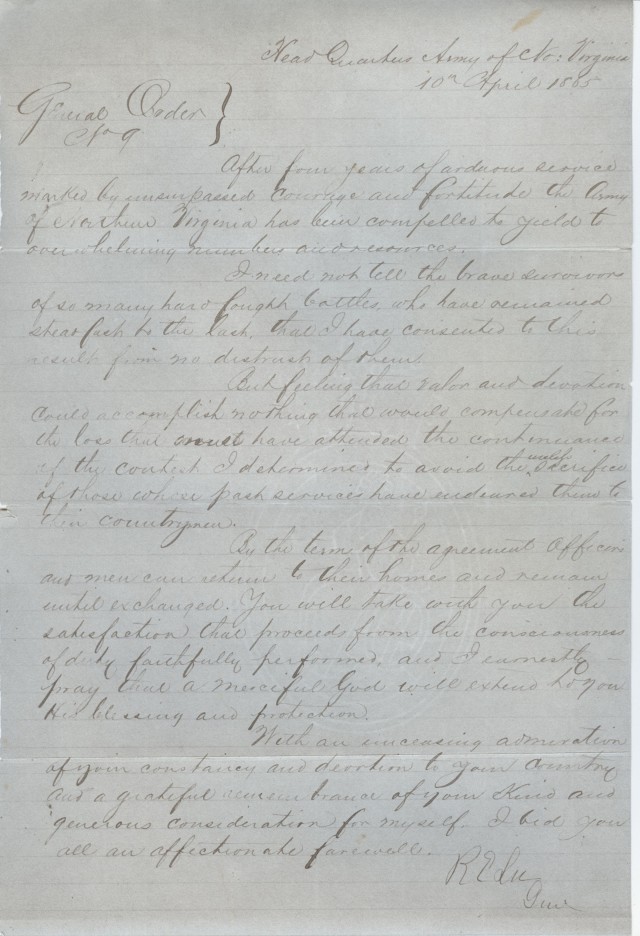 Head Quarters Army of No: Virginia
10th April 1865
General Order }
No 9
After four years of arduous service
marked by unsurpassed courage and fortitude the Army
of Northern Virginia has been compelled to yield to
overwhelming numbers and resources.
I need not tell the brave survivors
of so many hard fought battles, who have remained
steadfast to the last, that I have consented to this
result from no distrust of them.
But feeling that valor and devotion
could accomplish nothing that would compensate for
the loss that must have attended the continuance
of the contest I determined to avoid the useless sacrifice
of those whose past services have endeared them to
their countrymen.
By the term of the agreement Officers
and men can return to their homes and remain
until exchanged. You will take with you the
satisfaction that proceeds from the consciousness
of duty faithfully performed, and I earnestly
pray that a merciful God will extend to you
His blessing and protection.
With an unceasing admiration
of your constancy and devotion to your Country
and a grateful remembrance of your Kind and
generous consideration for myself. I bid you
all an affectionate farewell.
R E Lee
Genl